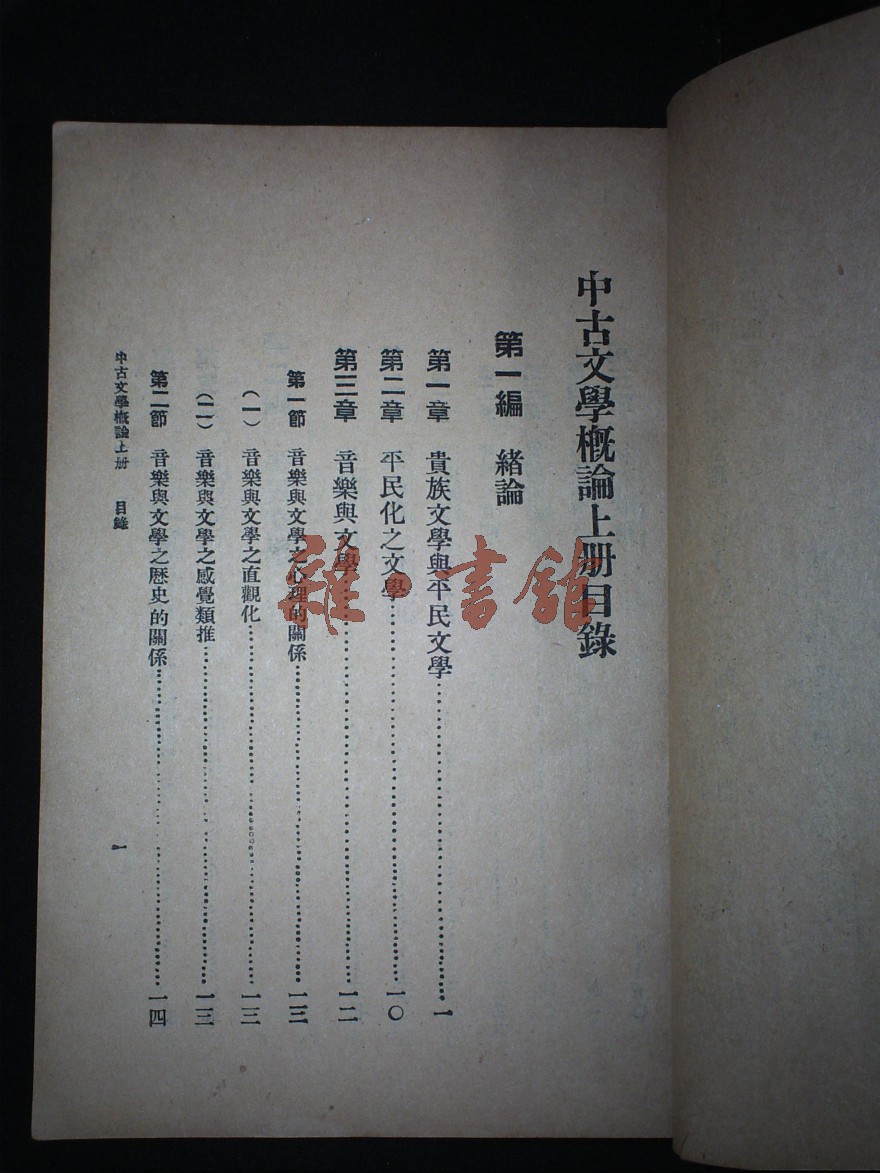 中古文學概論上册目錄
第一編　緒論
第一章　貴族文學與平民文學…………一
第二章　平民化之文學…………一〇
第三章　音樂與文學…………一二
第一節　音樂與文學之心理的關係…………一三
（一）音樂與文學之直觀化…………一三
（二）音樂與文學之感覺類推…………一三
第二節　音樂與文學之歷史的關係…………一四
中古文學概論上册　目錄　一
雜·書館